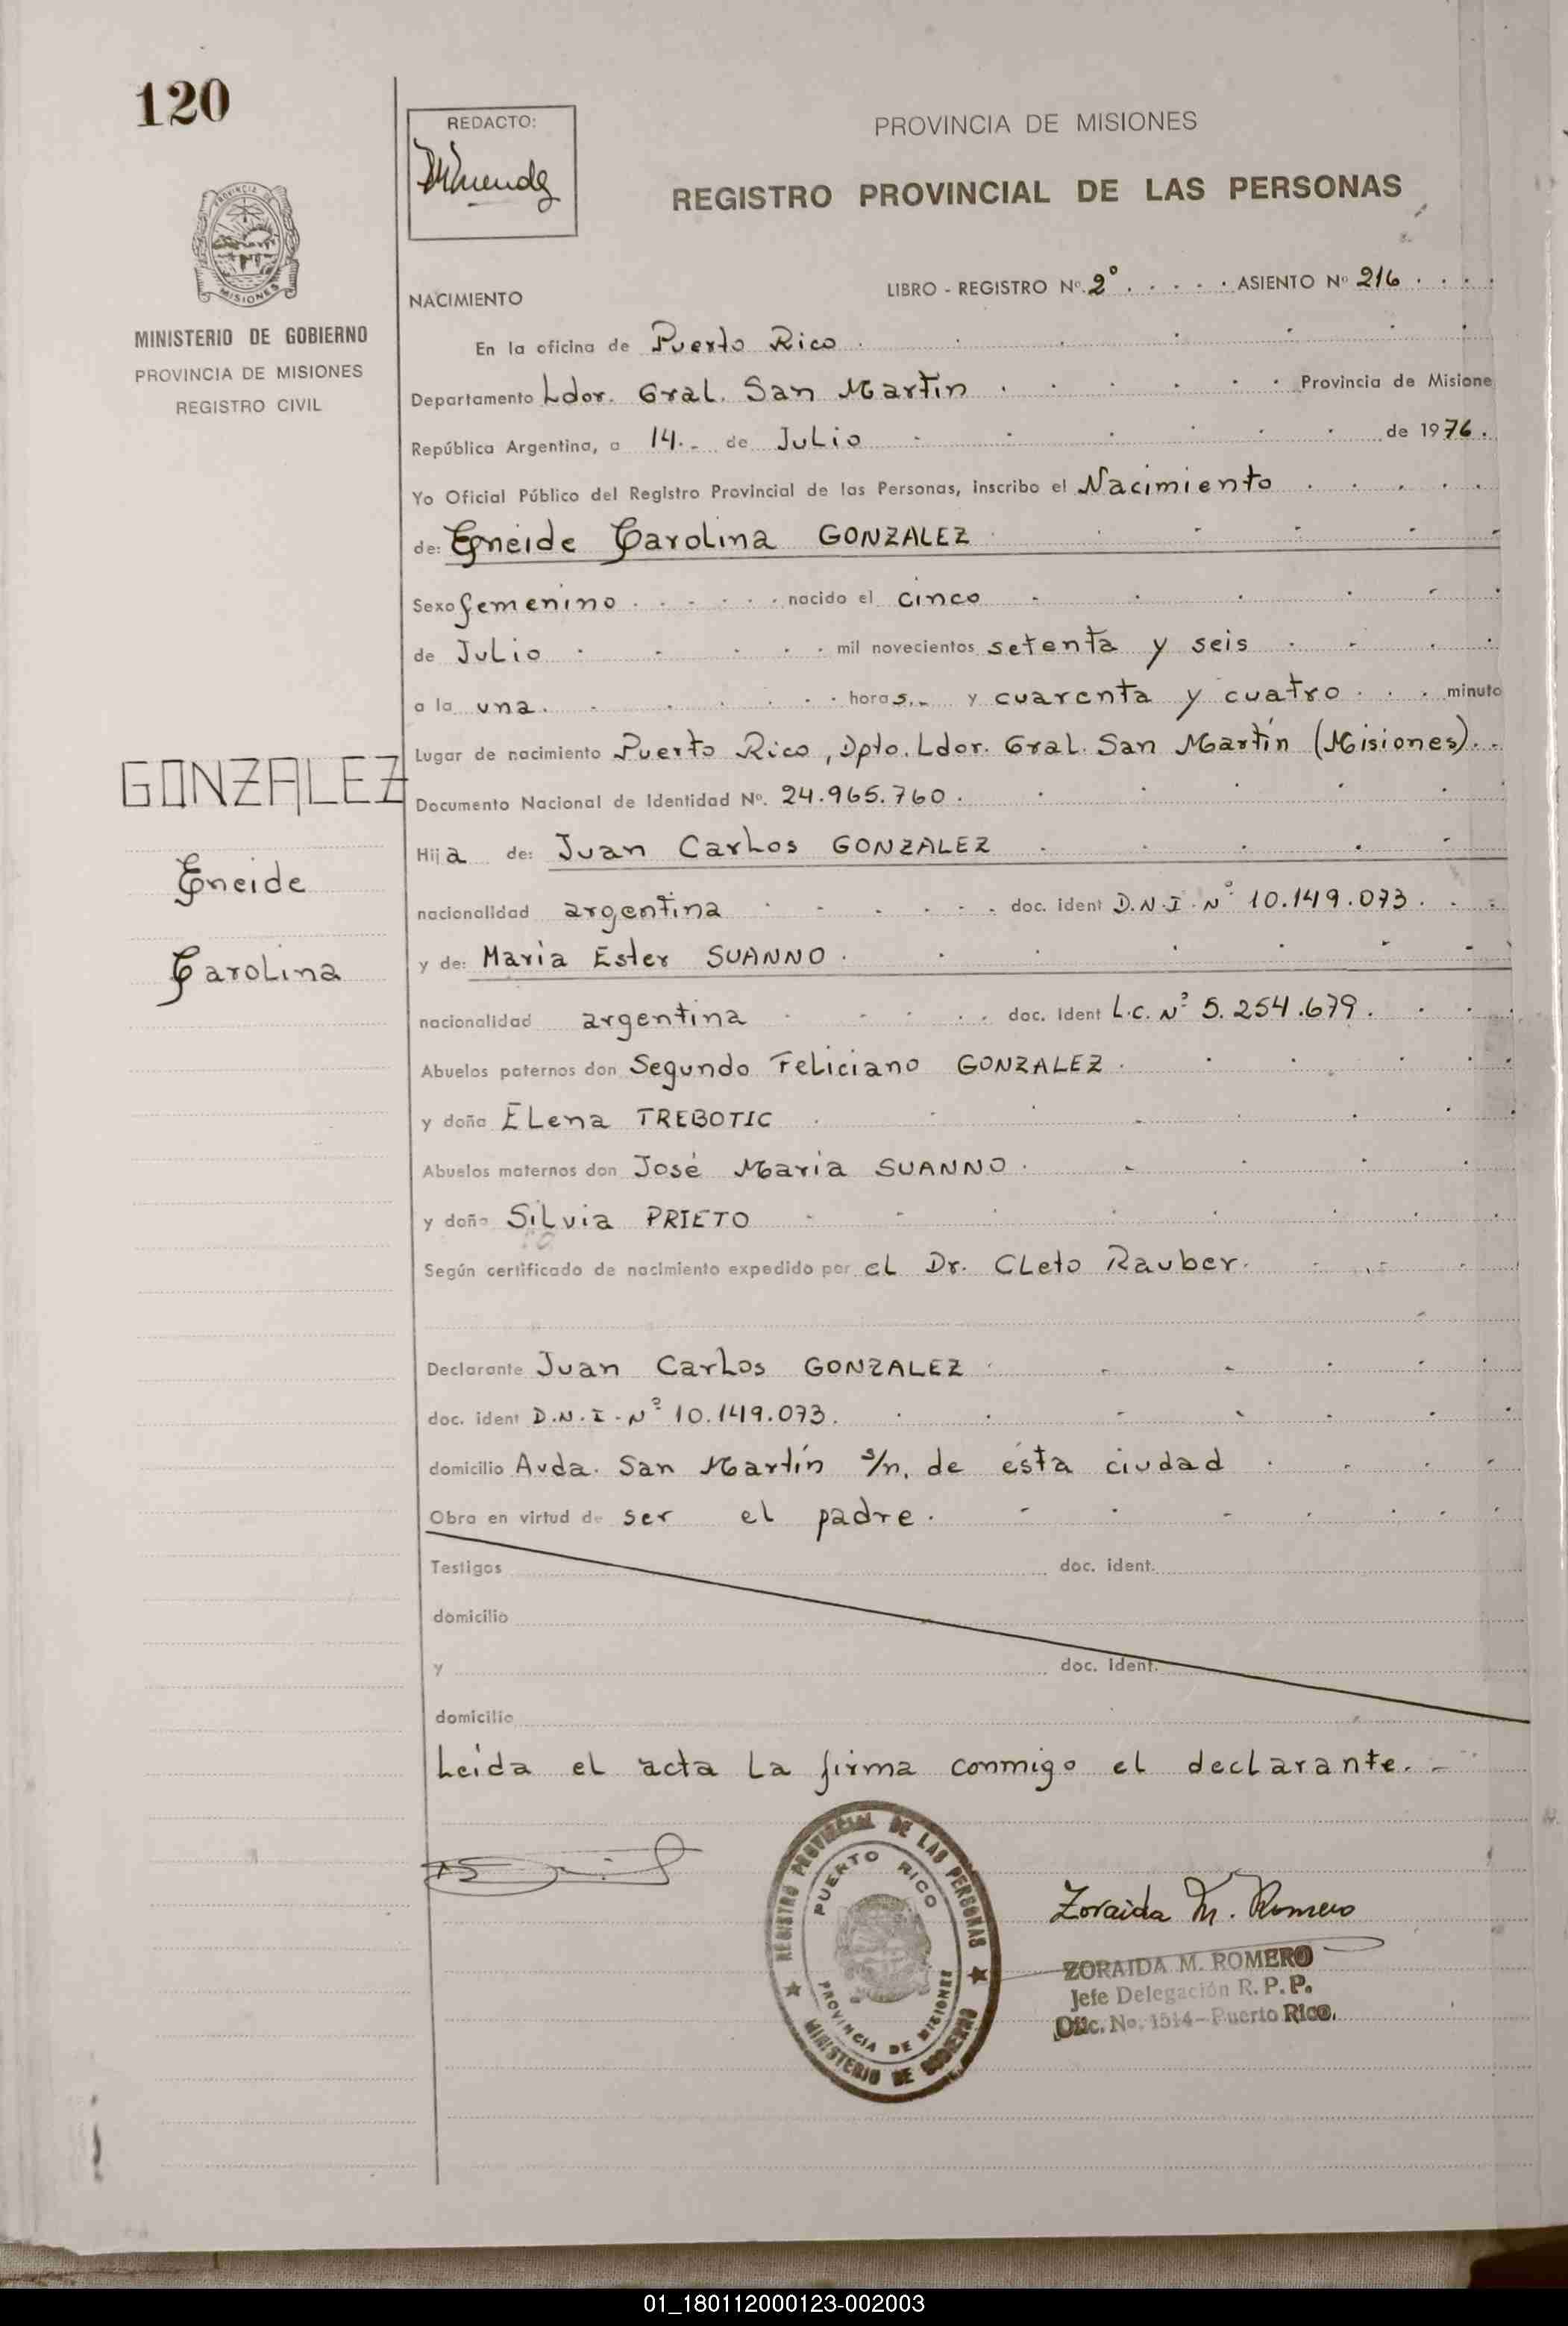 120
REDACTO:
PROVINCIA DE MISIONES
REGISTRO PROVINCIAL DE LAS PERSONAS
PROVINCIA DE
MISIONES
MINISTERIO DE GOBIERNO
PROVINCIA DE MISIONES
REGISTRO CIVIL
NACIMIENTO
LIBRO - REGISTRO Nº 2º . . . . . ASIENTO Nº 216 . . . .
En la oficina de Puerto Rico
Departamento Ldor. Gral. San Martín Provincia de Misione
República Argentina, a 14.- de Julio de 1976.
Yo Oficial Público del Registro Provincial de las Personas, inscribo el Nacimiento
de: Eneide Carolina GONZALEZ
Sexo femenino nacido el cinco
de Julio mil novecientos setenta y seis
a la una. horas.- y cuarenta y cuatro minuto
Lugar de nacimiento Puerto Rico, Dpto. Ldor. Gral. San Martín (Misiones).
Documento Nacional de Identidad Nº. 24.965.760.
GONZALEZ
Eneide
Carolina
Hija de: Juan Carlos GONZALEZ
nacionalidad argentina doc. ident D.N.I. Nº 10.149.073.
y de: María Ester SUANNO.
nacionalidad argentina doc. ident L.C. Nº 5.254.679.
Abuelos paternos don Segundo Feliciano GONZALEZ.
y doña Elena TREBOTIC
Abuelos maternos don José María SUANNO.
y doña Silvia PRIETO
Según certificado de nacimiento expedido por el Dr. Cleto Rauber.
Declarante Juan Carlos GONZALEZ
doc. ident D.N.I. Nº 10.149.073.
domicilio Avda. San Martín s/n. de ésta ciudad
Obra en virtud de ser el padre.
Testigos doc. ident.
domicilio
y doc. ident.
domicilio
Leída el acta la firma conmigo el declarante.-
REGISTRO PROVINCIAL DE LAS PERSONAS
PUERTO RICO
PROVINCIA DE MISIONES
MINISTERIO DE GOBIERNO
Zoraida M. Romero
ZORAIDA M. ROMERO
Jefe Delegación R. P. P.
Ofic. No. 1514 - Puerto Rico.
01_180112000123-002003